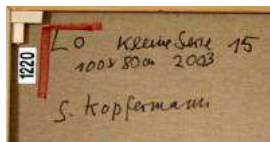 LO Kleine Serie 15
100 x 80 cm 2003
S. Kopfermann
1220